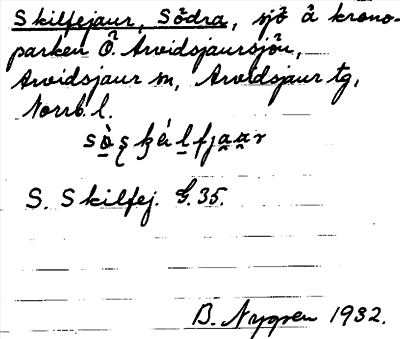 Skilfejaur, Södra, sjö å krono-
parken Ö. Arvidsjaursjön,
Arvidsjaur sn, Arvidsjaur tg,
Norrb. l.
S. Skilfej. G. 35.
B. Nygren 1932.